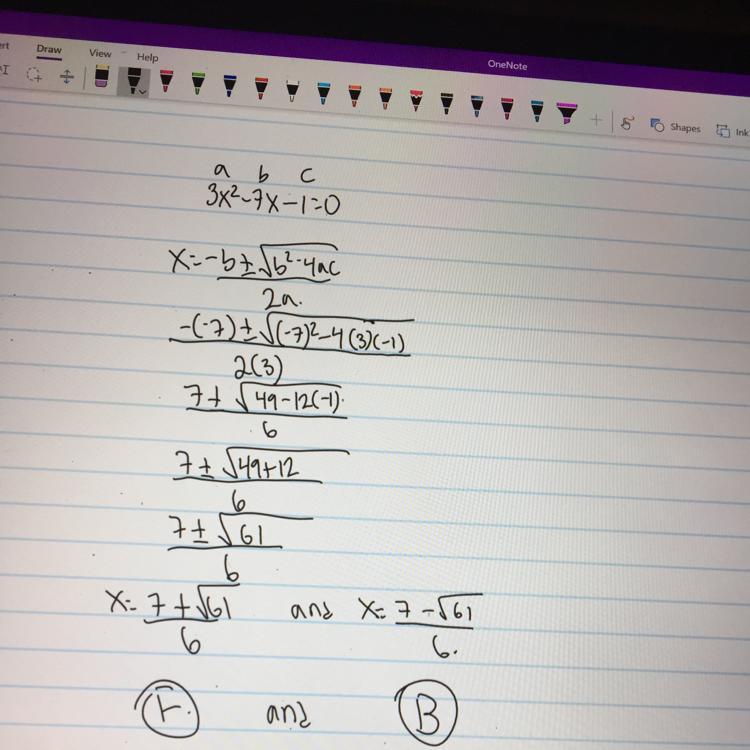 OneNote
Draw View Help
Shapes Ink
a b c
3x²-7x-1=0
x=-b±√b²-4ac
2a.
-(-7)±√(-7)²-4(3)(-1)
2(3)
7±√49-12(-1)
6
7±√49+12
6
7±√61
6
x=7+√61 and x=7-√61
6 6.
and B